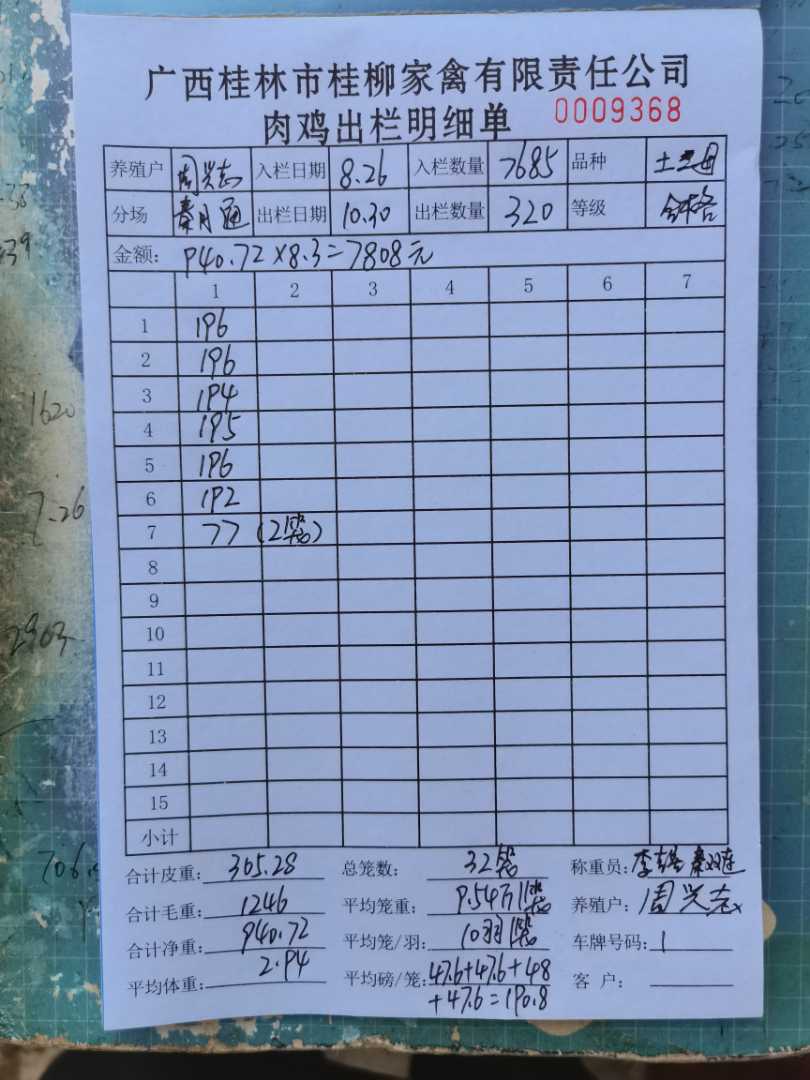 广西桂林市桂柳家禽有限责任公司
肉鸡出栏明细单 0009368
养殖户 周兴志 入栏日期 8.26 入栏数量 7685 品种 土三母
分场 出栏日期 10.30 出栏数量 320 等级 合格
金额: 940.72×8.3=7808元
1 2 3 4 5 6 7
1 196
2 196
3 194
4 195
5 196
6 192
7 77 (2笼)
8
9
10
11
12
13
14
15
小计
合计皮重: 305.28 总笼数: 32笼 称重员:
合计毛重: 1246 平均笼重: 9.54斤/笼 养殖户: 周兴志
合计净重: 940.72 平均笼/羽: 10羽/笼 车牌号码:
平均体重: 2.94 平均磅/笼: 47.6+47.6+48 客 户:
+47.6=190.8
1620
7.26
2963
706.